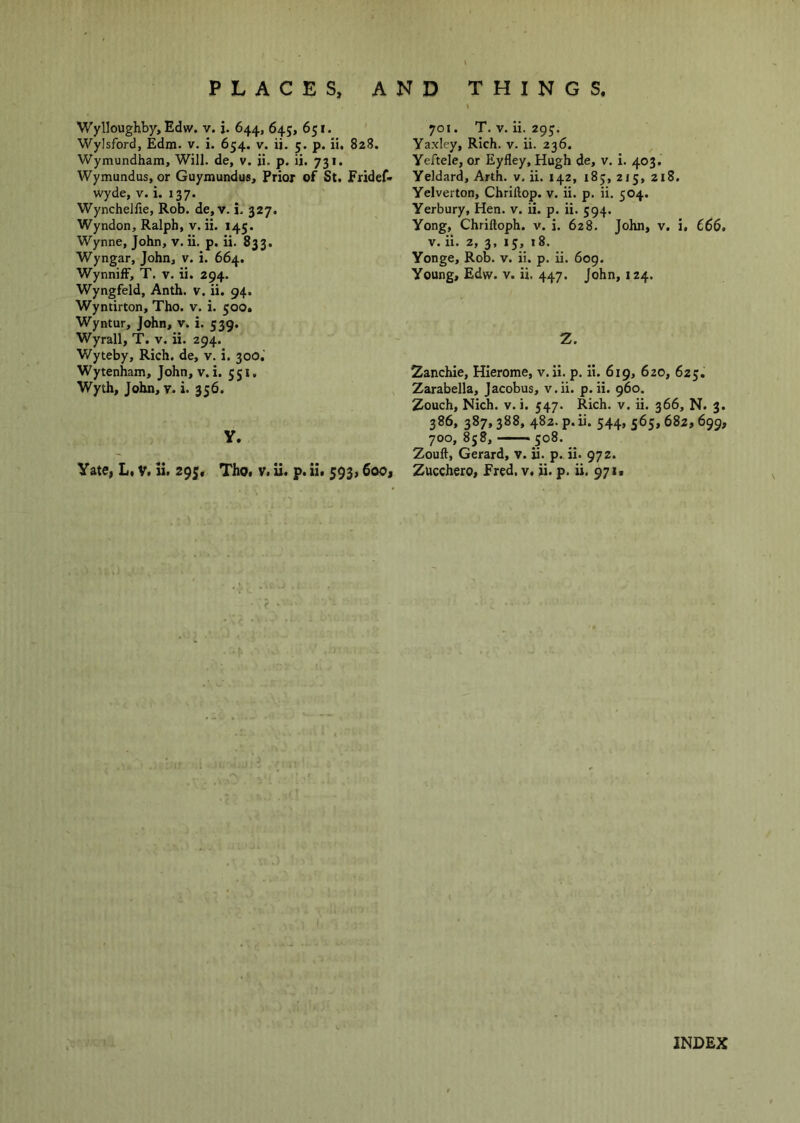 PLACES, AND THINGS.
Wylloughby, Edw. v. i. 644, 645, 651.
Wylsford, Edm. v. i. 654. v. ii. 5. p. ii. 828.
Wymundham, Will. de, v. ii. p. ii. 731.
Wymundus, or Guymundus, Prior of St. Frideſ-
wyde, v. i. 137.
Wynchelſie, Rob. de, v. i. 327.
Wyndon, Ralph, v. ii. 145.
Wynne, John, v. ii. p. ii. 833.
Wyngar, John, v. i. 664.
Wynniff, T. v. ii. 294.
Wyngfeld, Anth. v. ii. 94.
Wyntirton, Tho. v. i. 500.
Wyntur, John, v. i. 539.
Wyrall, T. v. ii. 294.
Wyteby, Rich. de, v. i. 300.
Wytenham, John, v. i. 551.
Wyth, John, v. i. 356.
Y.
Yate, L. v. ii. 295. Tho. v. ii. p. ii. 593, 600,
701. T. v. ii. 295.
Yaxley, Rich. v. ii. 236.
Yeſtele, or Eyſley, Hugh de, v. i. 403.
Yeldard, Arth. v. ii. 142, 185, 215, 218.
Yelverton, Chriſtop. v. ii. p. ii. 504.
Yerbury, Hen. v. ii. p. ii. 594.
Yong, Chriſtoph. v. i. 628. John, v. i. 666.
v. ii. 2, 3, 15, 18.
Yonge, Rob. v. ii. p. ii. 609.
Young, Edw. v. ii. 447. John, 124.
Z.
Zanchie, Hierome, v. ii. p. ii. 619, 620, 625.
Zarabella, Jacobus, v. ii. p. ii. 960.
Zouch, Nich. v. i. 547. Rich. v. ii. 366, N. 3.
386, 387, 388, 482. p. ii. 544, 565, 682, 699,
700, 858, —— 508.
Zouſt, Gerard, v. ii. p. ii. 972.
Zucchero, Fred. v. ii. p. ii. 971.
INDEX